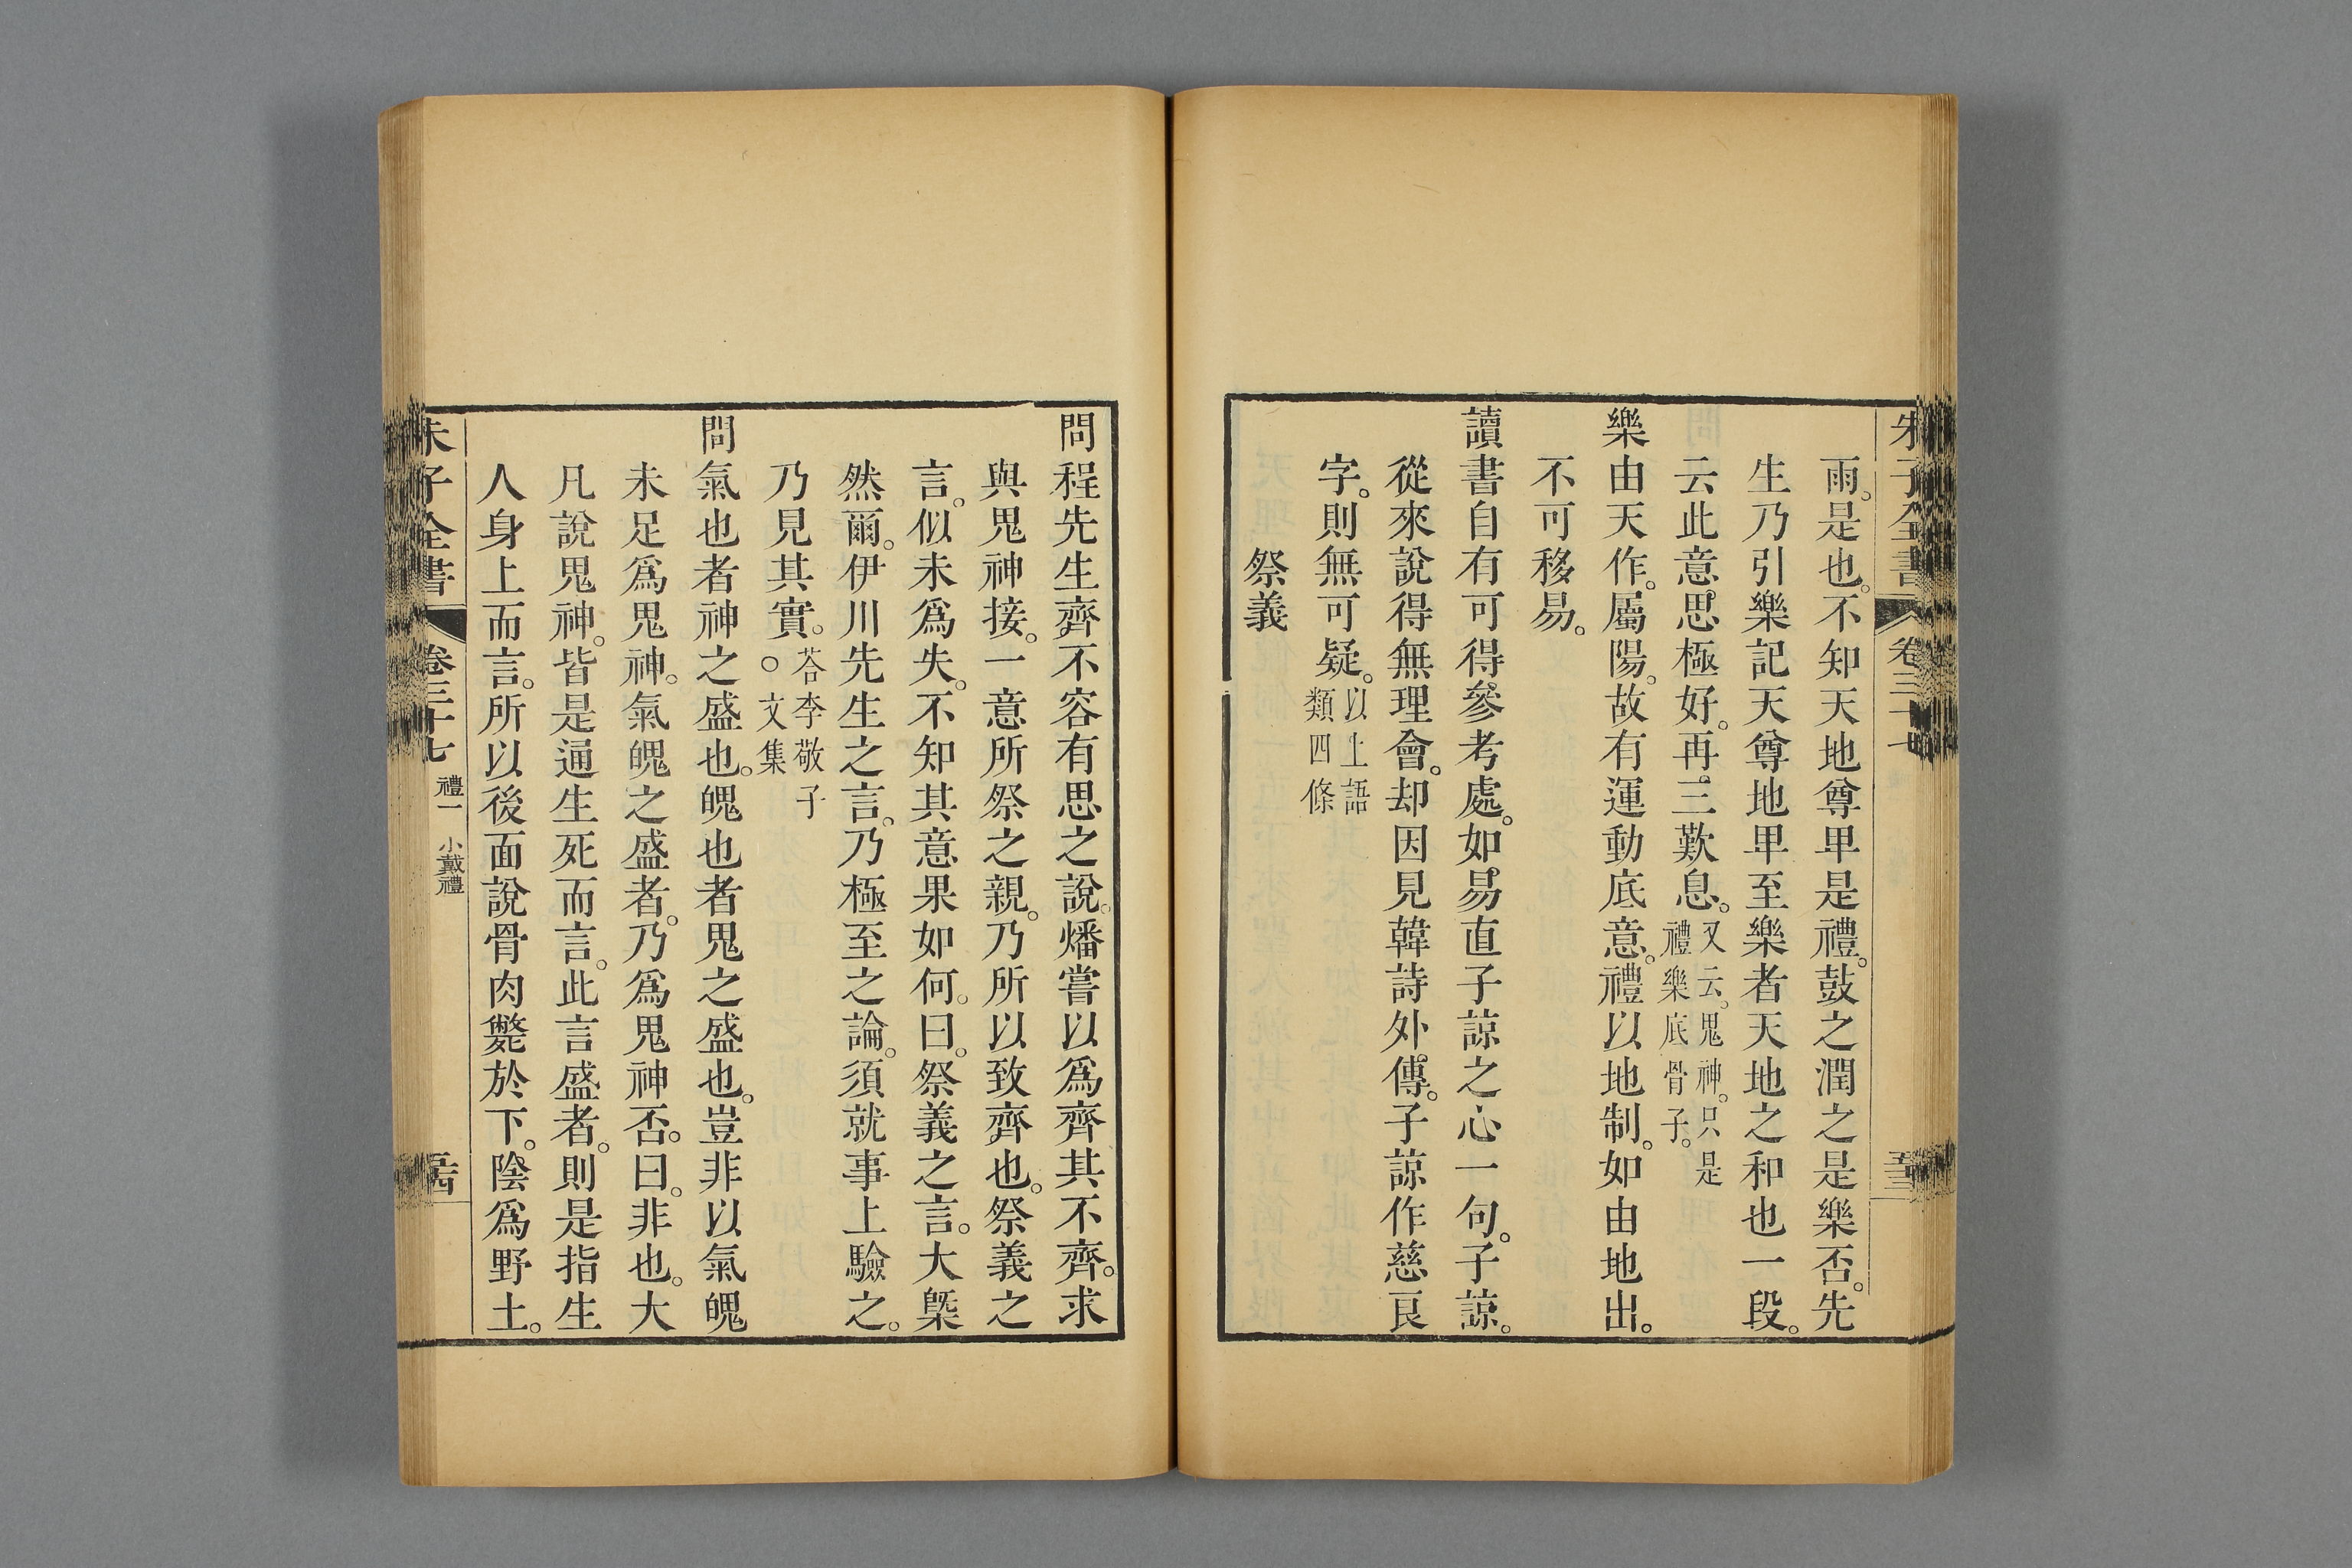 朱子全書 卷三十七 五十三
雨。是也。不知天地尊卑是禮。鼓之潤之是樂否。先
生乃引樂記天尊地卑至樂者天地之和也一段。
云此意思極好。再三歎息。又云。鬼神。只是禮樂底骨子。
樂由天作。屬陽。故有運動底意。禮以地制。如由地出。
不可移易。
讀書自有可得參考處。如易直子諒之心一句。子諒。
從來說得無理會。却因見韓詩外傳。子諒作慈良
字。則無可疑。以上語類四條
祭義
問程先生齊不容有思之說。燔嘗以爲齊其不齊。求
與鬼神接。一意所祭之親。乃所以致齊也。祭義之
言。似未爲失。不知其意果如何。曰。祭義之言。大槩
然爾。伊川先生之言。乃極至之論。須就事上驗之。
乃見其實。荅李敬子○文集
問氣也者神之盛也。魄也者鬼之盛也。豈非以氣魄
未足爲鬼神。氣魄之盛者。乃爲鬼神否。曰。非也。大
凡說鬼神。皆是通生死而言。此言盛者。則是指生
人身上而言。所以後面說骨肉斃於下。陰爲野土。
朱子全書 卷三十七 禮一 小戴禮 五十四